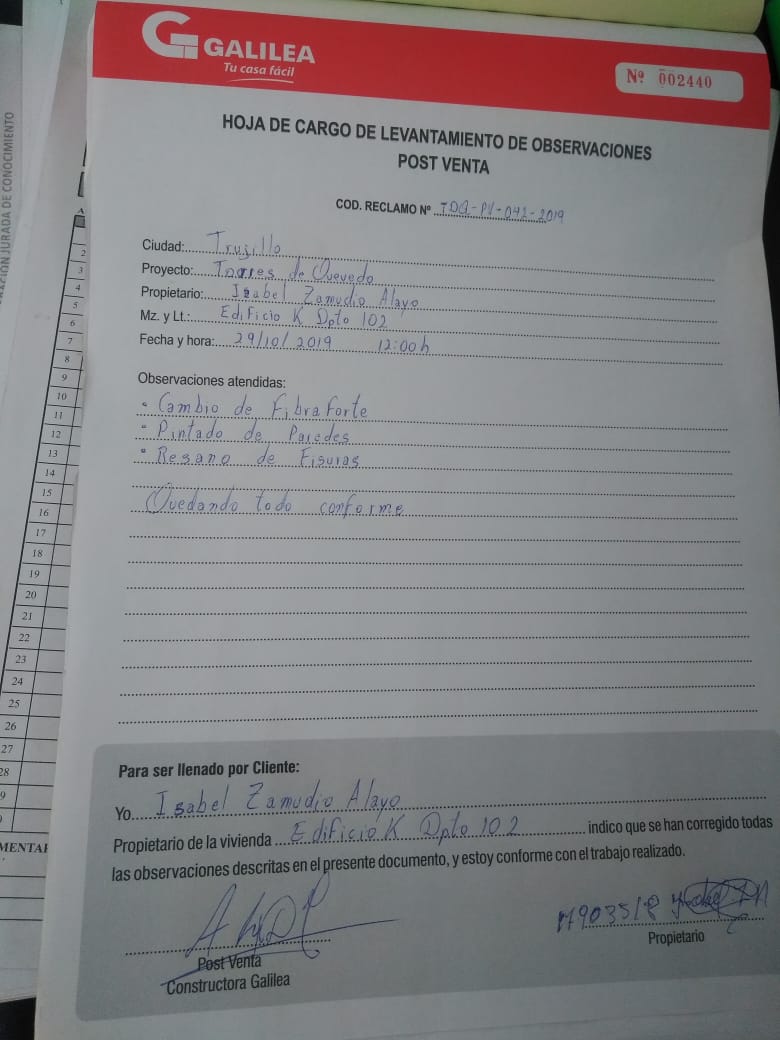 GALILEA
Tu casa fácil
Nº 002440
HOJA DE CARGO DE LEVANTAMIENTO DE OBSERVACIONES
POST VENTA
COD. RECLAMO Nº TDQ-PV-042-2019
Ciudad: Trujillo
Proyecto: Torres de Quevedo
Propietario: Isabel Zamudio Alayo
Mz. y Lt.: Edificio K Dpto 102
Fecha y hora: 29/10/2019 12:00h
Observaciones atendidas:
• Cambio de Fibraforte
• Pintado de Paredes
• Resano de Fisuras
Quedando todo conforme
Para ser llenado por Cliente:
Yo Isabel Zamudio Alayo
Propietario de la vivienda Edificio K Dpto 102 indico que se han corregido todas
las observaciones descritas en el presente documento, y estoy conforme con el trabajo realizado.
Post Venta
Constructora Galilea
Propietario
JURADA DE CONOCIMIENTO
2
3
4
5
6
7
8
9
10
11
12
13
14
15
16
17
18
19
20
21
22
23
24
25
26
27
28